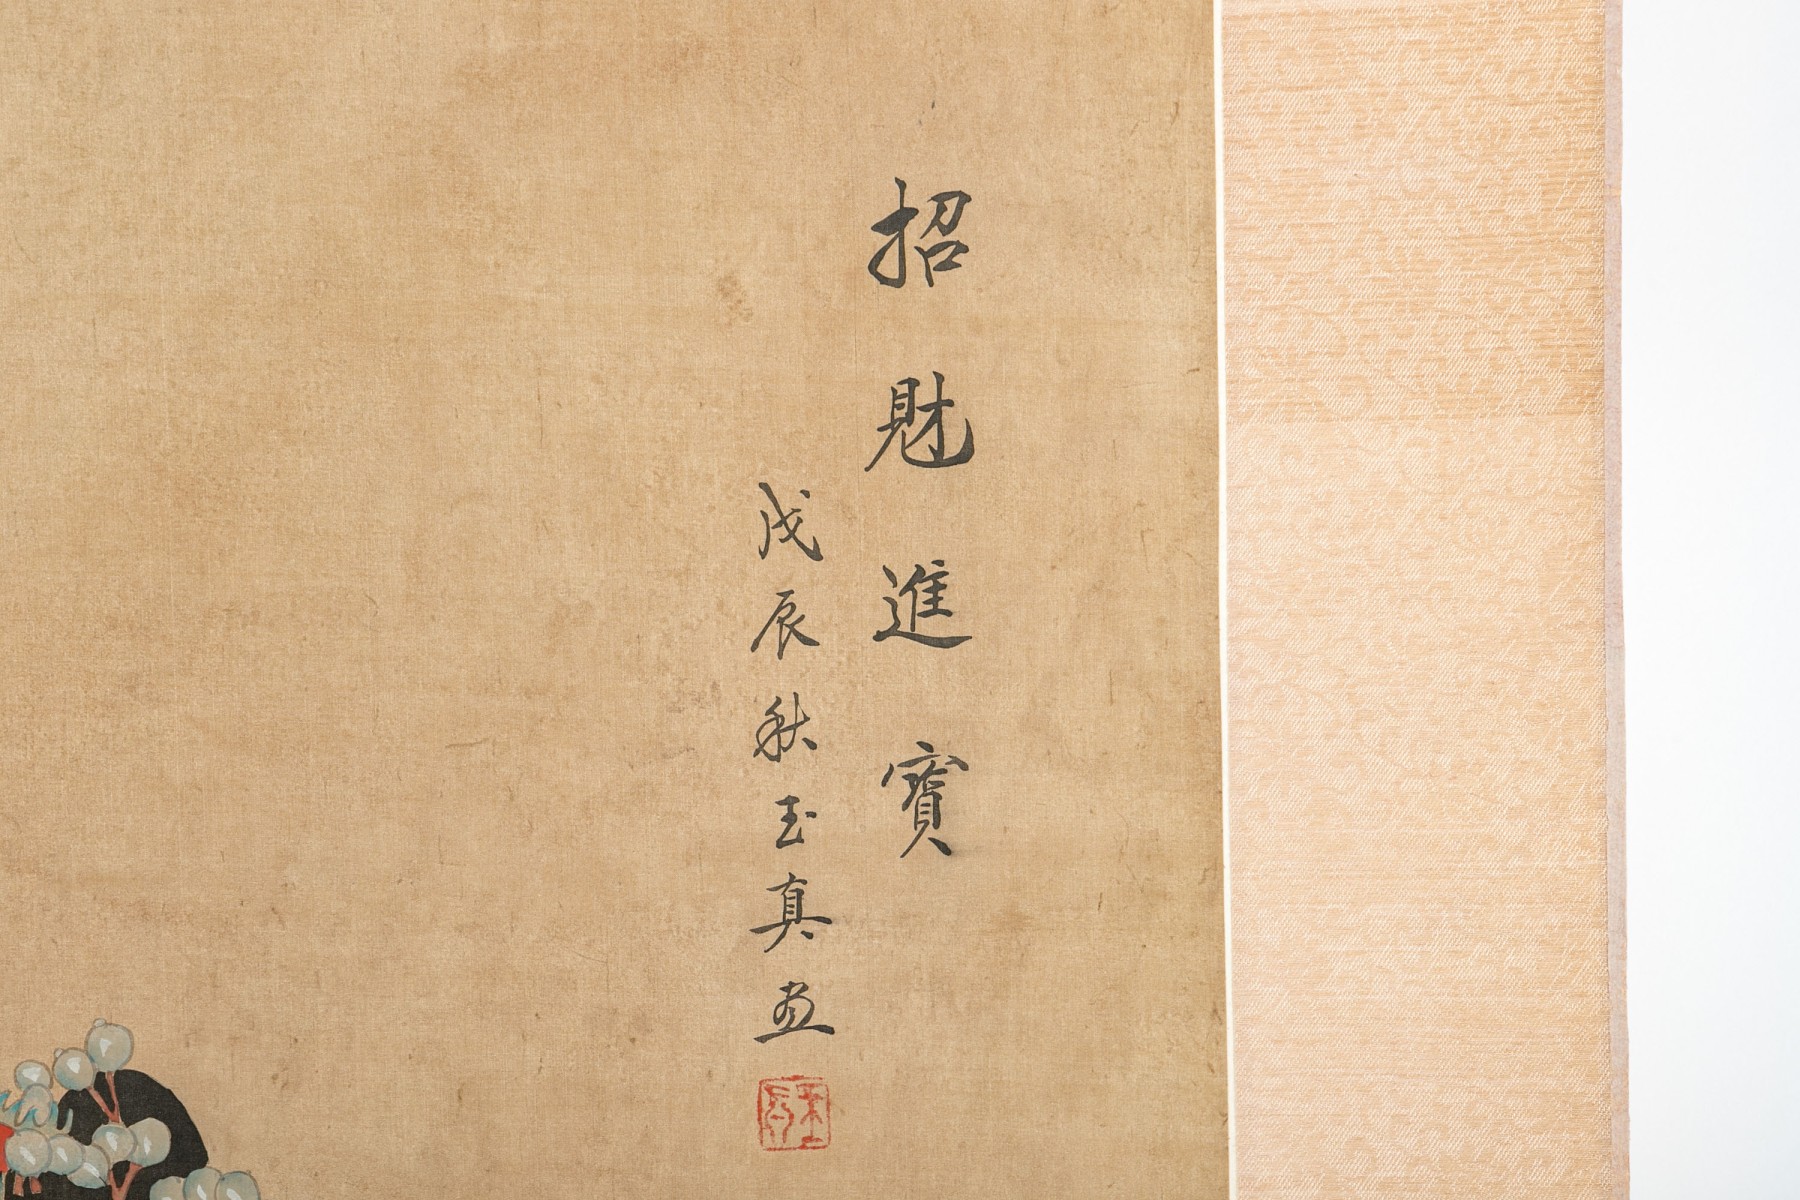 招財進寶
戊辰秋玉真画